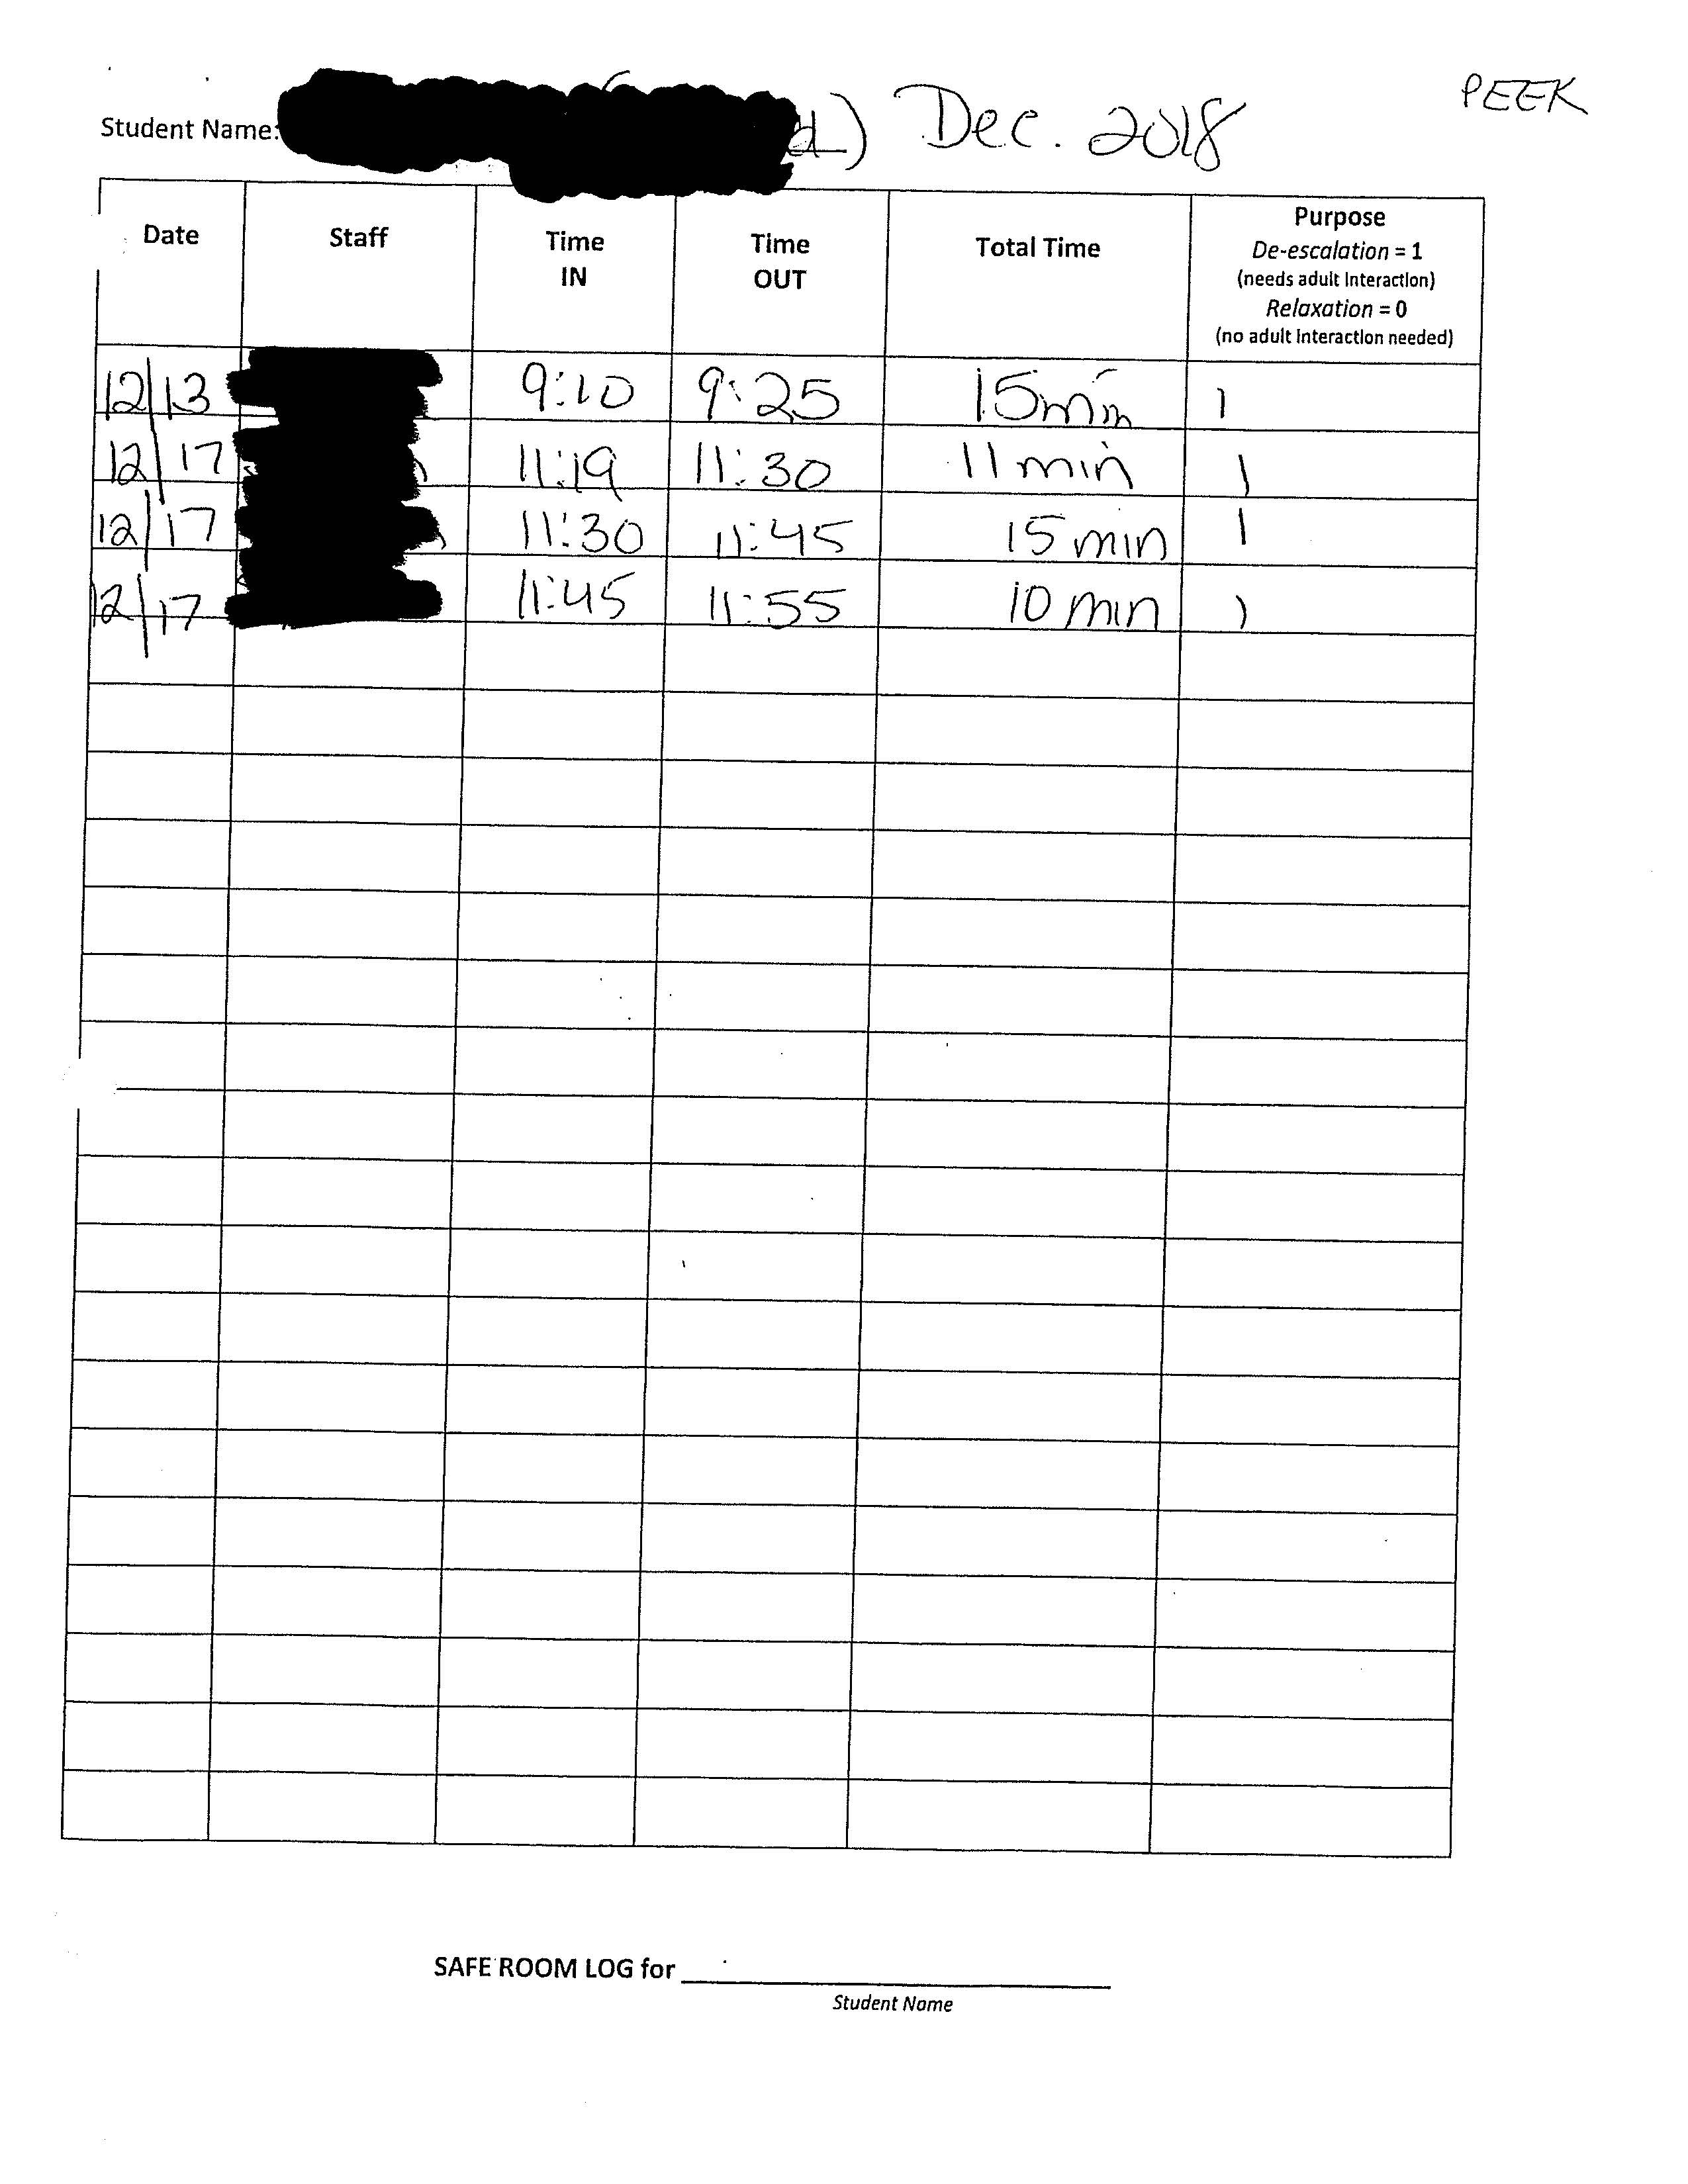 PEEK
Student Name: d) Dec. 2018
Date Staff Time IN Time OUT Total Time Purpose
De-escalation = 1
(needs adult interaction)
Relaxation = 0
(no adult interaction needed)
12/13 9:10 9:25 15 min 1
12/17 11:19 11:30 11 min 1
12/17 11:30 11:45 15 min 1
12/17 11:45 11:55 10 min 1
SAFE ROOM LOG for
Student Name